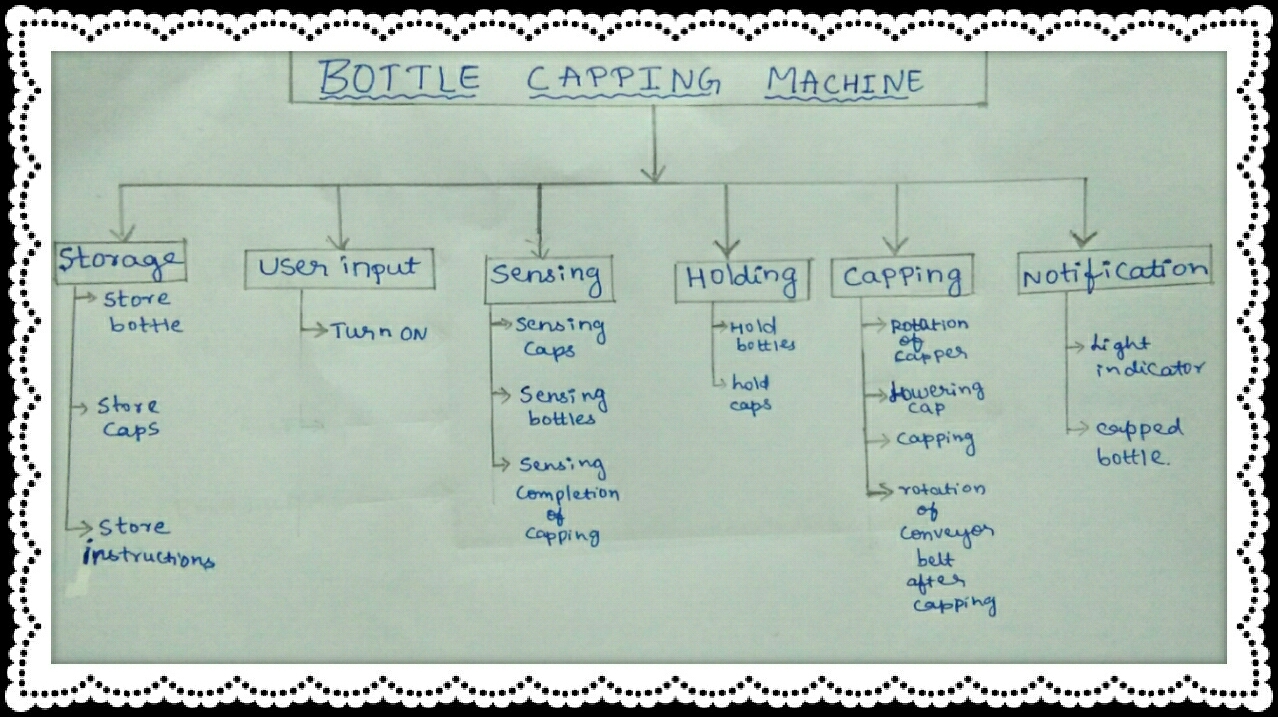 BOTTLE CAPPING MACHINE
Storage
Store
bottle
Store
caps
Store
instructions
User input
Turn ON
Sensing
Sensing
Caps
Sensing
bottles
Sensing
Completion
of
Capping
Holding
Hold
bottles
hold
caps
Capping
Rotation
of
Capper
Lowering
cap
Capping
rotation
of
Conveyor
belt
after
Capping
Notification
Light
indicator
capped
bottle.